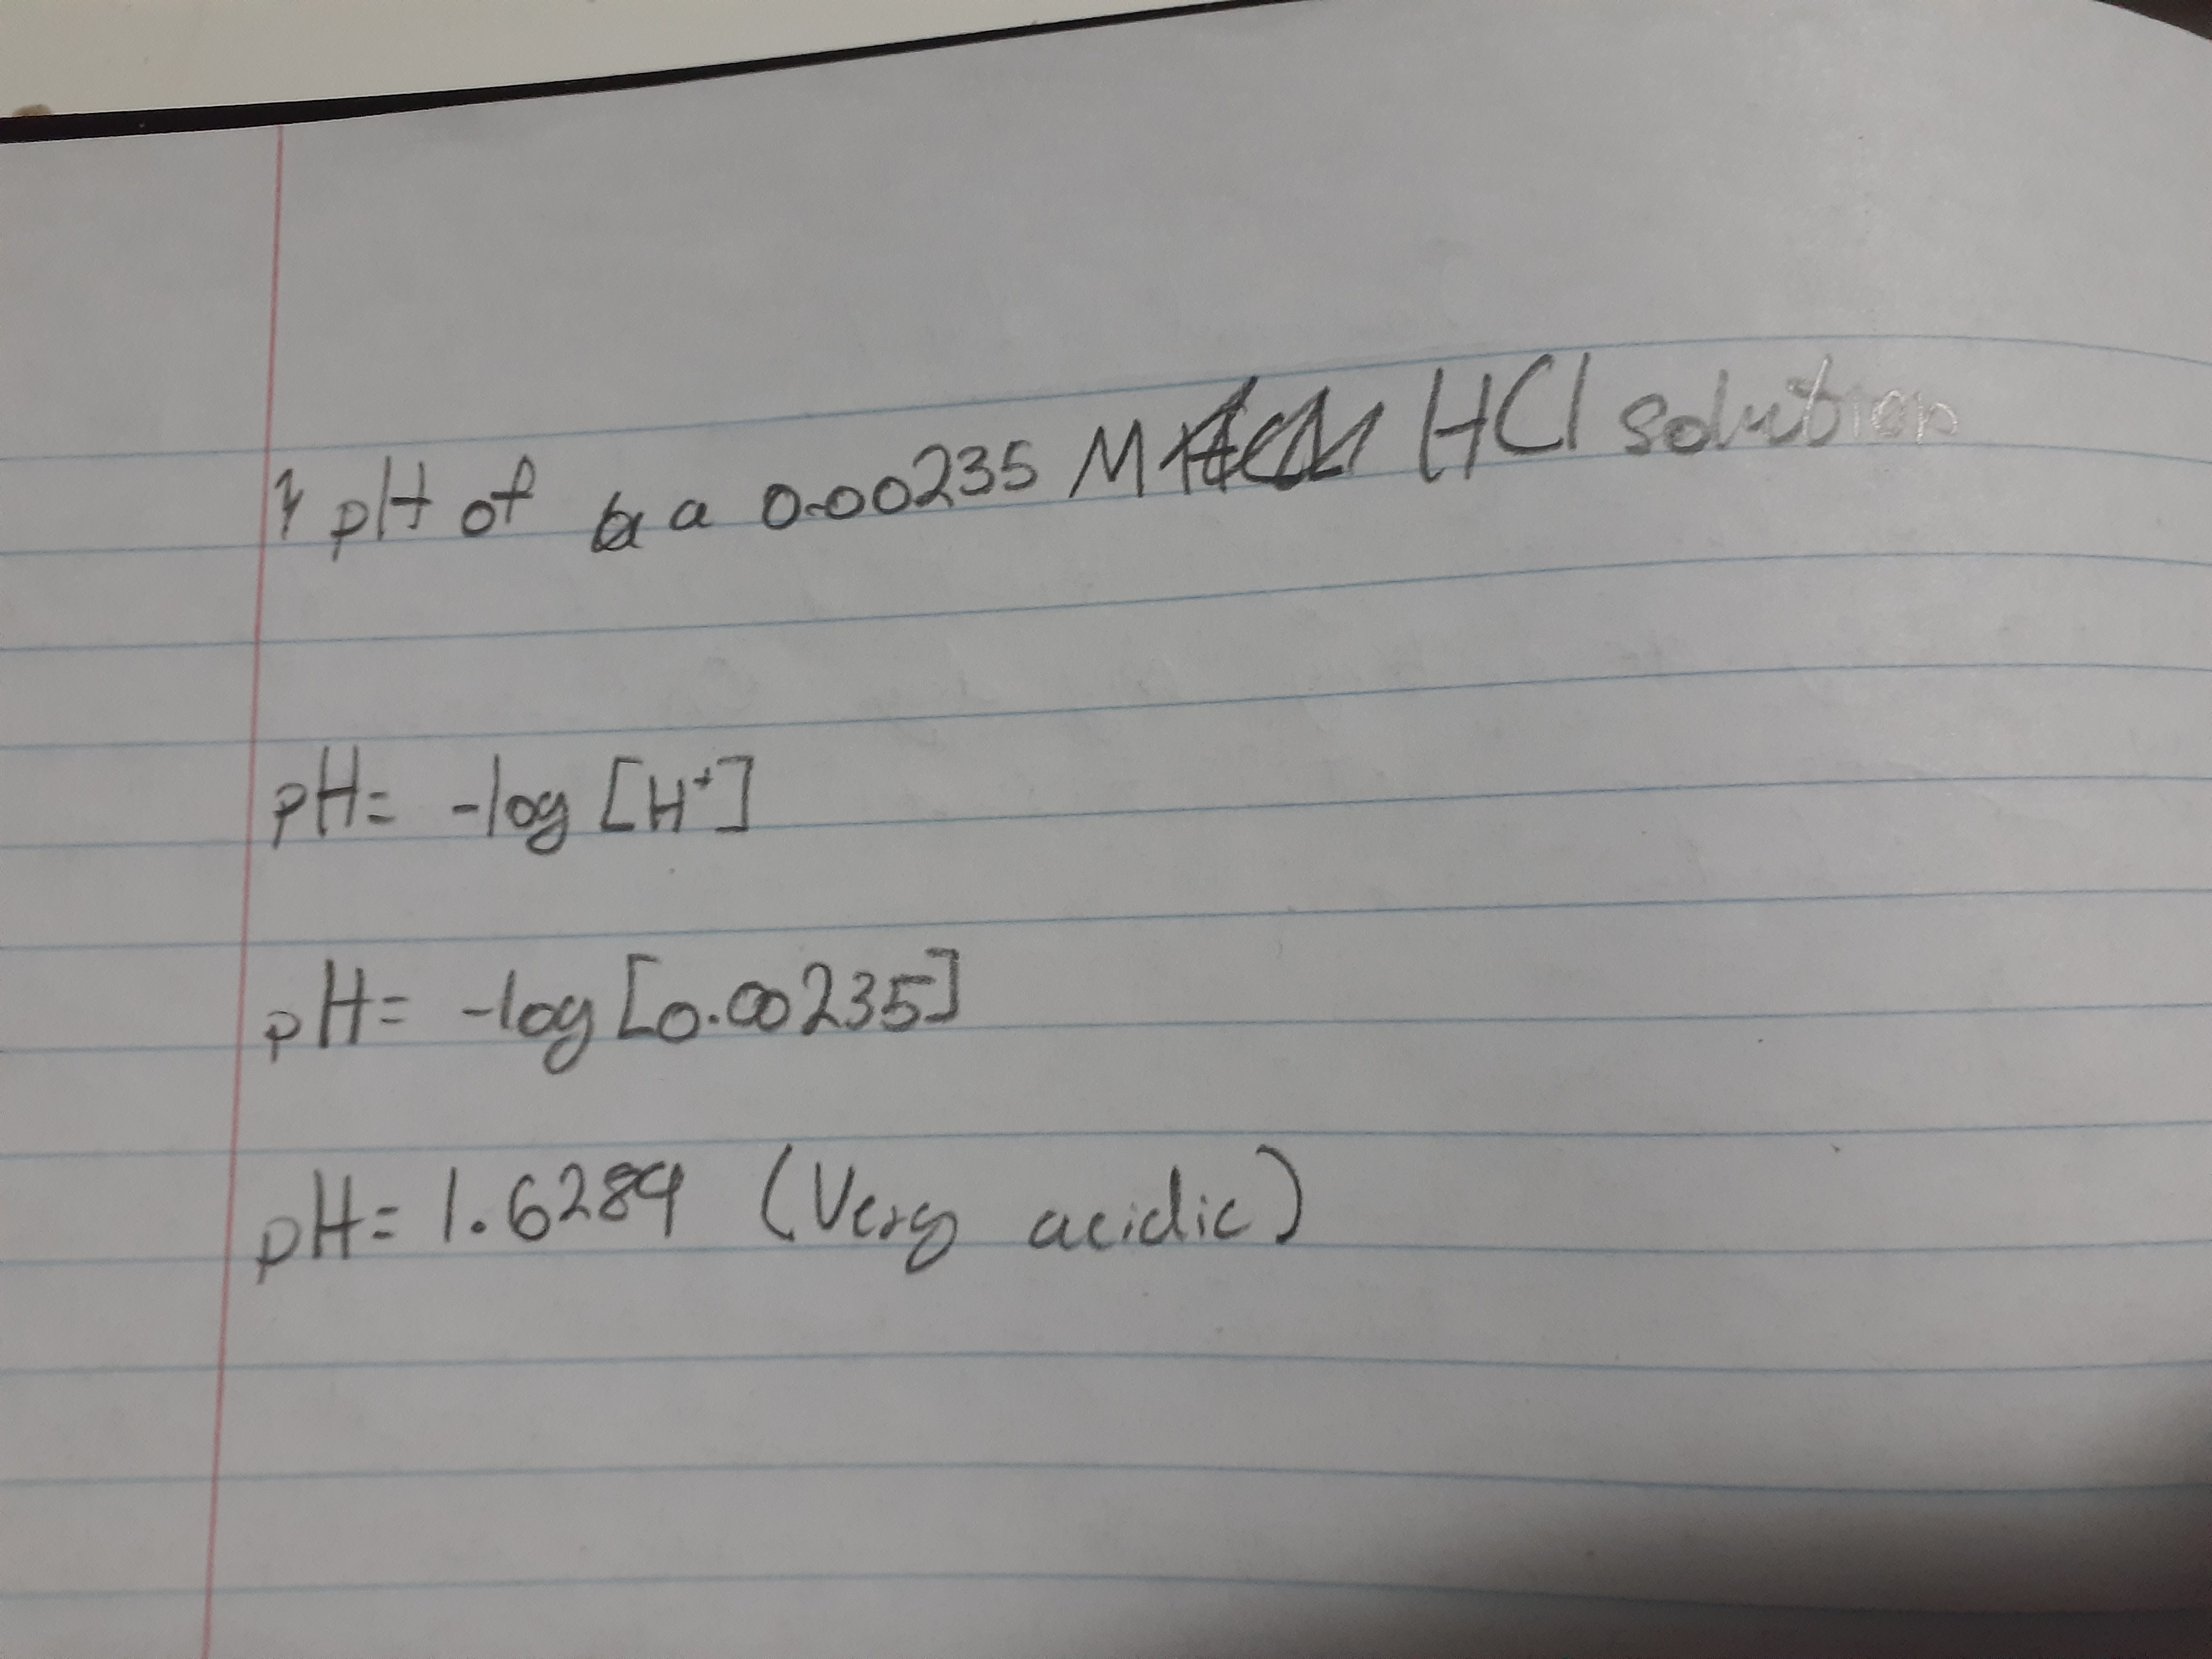 pH of a 0.00235 M HCl solution
pH= -log [H⁺]
pH= -log [0.00235]
pH= 1.6289 (Very acidic)